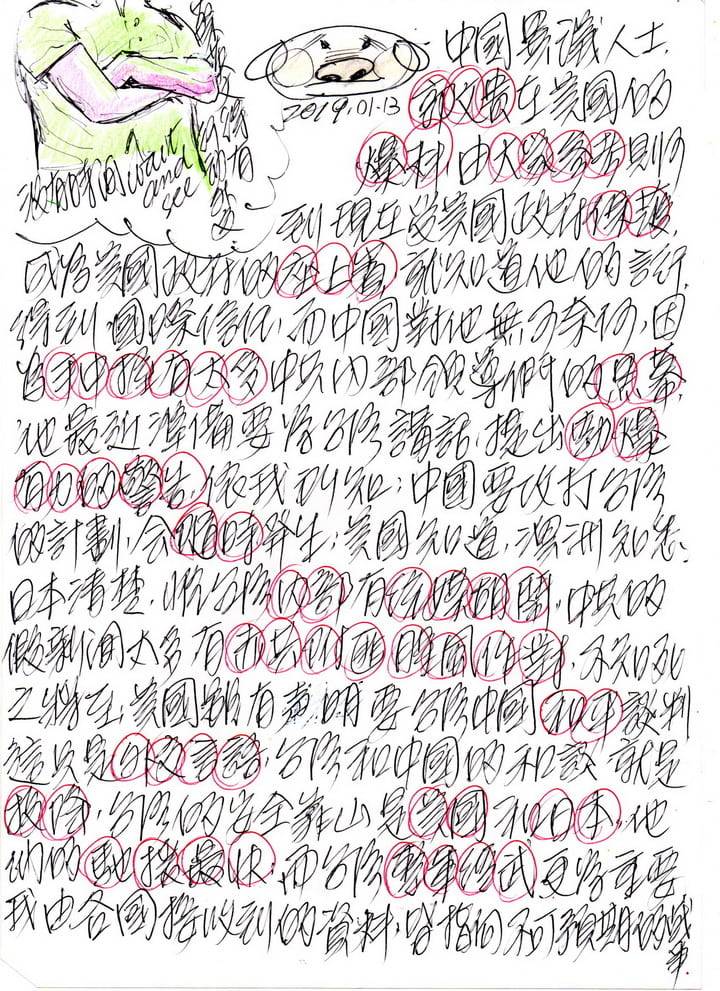 中國異議人士
郭文貴在美國的
爆料,由大家參考,則可
到現在受美國政府保護,
成為美國政府的座上賓,就知道他的言行
得到國際信任,而中國對他無可奈何,因
為手中握有太多中共內部領導們的黑幕,
他最近準備要為台灣講話,提出勁爆
有力的警告,依我所知:中國要攻打台灣
的計劃,会隨時發生,美國知道,澳洲知悉,
日本清楚,惟台灣內部有
中共的
假新聞太多,有
不知死
美國雖有声明要台灣中國和平談判
這只是外交言語,台灣和中國的和談就是
投降,台灣的安全靠山是美國和日本,他
們的馳援最快,而台灣整軍經武更為主要
我由各國接收到的資料,皆指向不可預期的戰
爭
2019.01-13
沒有時間 wait
and
see